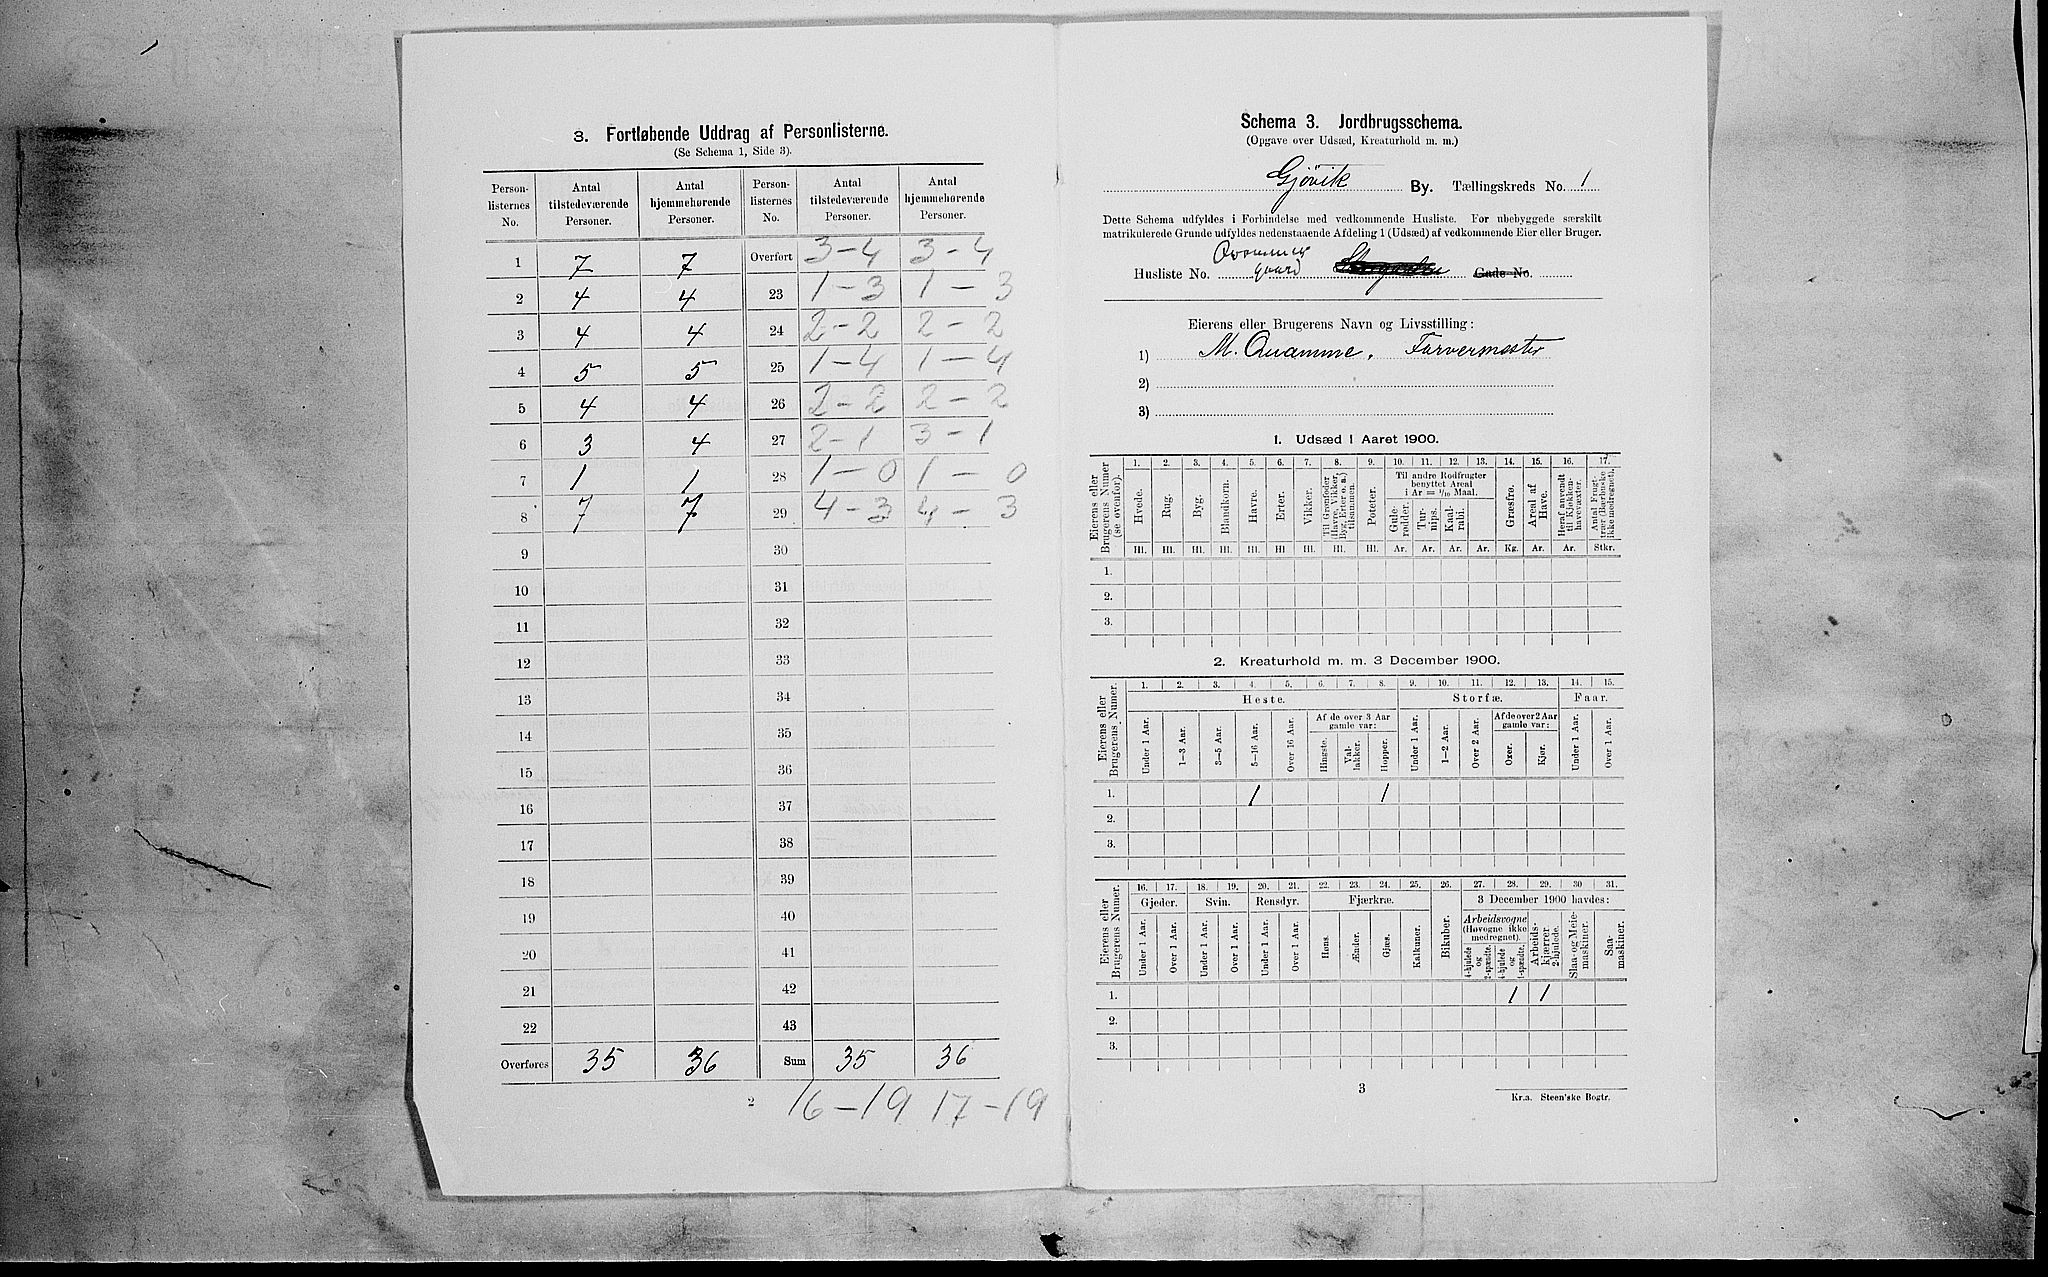 3. Fortløbende Uddrag af Personlisterne.
(Se Schema 1, Side 3).
Person-listernes No. | Antal tilstedeværende Personer. | Antal hjemmehørende Personer. | Person-listernes No. | Antal tilstedeværende Personer. | Antal hjemmehørende Personer.
1 7 7 Overført 3-4 3-4
2 4 4 23 1-3 1-3
3 4 4 24 2-2 2-2
4 5 5 25 1-4 1-4
5 4 4 26 2-2 2-2
6 3 4 27 2-1 3-1
7 1 1 28 1-0 1-0
8 7 7 29 4-3 4-3
9 30
10 31
11 32
12 33
13 34
14 35
15 36
16 37
17 38
18 39
19 40
20 41
21 42
22 43
Overføres 35 36 Sum 35 36
2 16-19 17-19
Schema 3. Jordbrugsschema.
(Opgave over Udsæd, Kreaturhold m. m.)
Gjøvik By. Tællingskreds No. 1
Dette Schema udfyldes i Forbindelse med vedkommende Husliste. For ubebyggede særskilt
matrikulerede Grunde udfyldes nedenstaaende Afdeling 1 (Udsæd) af vedkommende Eier eller Bruger.
Husliste No. gaard Gade No.
Eierens eller Brugerens Navn og Livsstilling:
1) M. Quamme. Farvermester
2)
3)
1. Udsæd i Aaret 1900.
Eierens eller Brugerens Numer (se ovenfor).
1. 2. 3. 4. 5. 6. 7. 8. 9. 10. 11. 12. 13. 14. 15. 16. 17.
Hvede. Rug. Byg. Blandkorn. Havre. Erter. Vikker. Til Grønfoder (Havre, Vikker, Byg, Erter o. a.) tilsammen. Poteter.
Til andre Rodfrugter benyttet Areal i Ar = 1/10 Maal.
Gulerødder. Turnips. Kaalrabi. Græsfrø. Areal af Have. Heraf anvendt til Kjøkkenhavevæxter. Antal Frugttrær (Bærbuske ikke medregnet).
Hl. Hl. Hl. Hl. Hl. Hl Hl. Hl. Hl. Ar. Ar. Ar. Ar. Kg. Ar. Ar. Stkr.
1.
2.
3.
2. Kreaturhold m. m. 3 December 1900.
Eierens eller Brugerens Numer.
1. 2. 3. 4. 5. 6. 7. 8. 9. 10. 11. 12. 13. 14. 15.
Heste. Storfæ. Faar.
Af de over 3 Aar gamle var: Af de over 2 Aar gamle var:
Under 1 Aar. 1-3 Aar. 3-5 Aar. 5-16 Aar. Over 16 Aar. Hingste. Vallakker. Hopper. Under 1 Aar. 1-2 Aar. Over 2 Aar. Oxer. Kjør. Under 1 Aar. Over 1 Aar.
1. 1 1
2.
3.
Eierens eller Brugerens Numer.
16. 17. 18. 19. 20. 21. 22. 23. 24. 25. 26. 27. 28. 29. 30 31.
Gjeder. Svin. Rensdyr. Fjærkræ. 3 December 1900 havdes:
Under 1 Aar. Over 1 Aar. Under 1 Aar. Over 1 Aar. Under 1 Aar. Over 1 Aar. Høns. Ænder. Gjæs. Kalkuner. Bikuber.
Arbeidsvogne (Høvogne ikke medregnet). 4-hjulede og 2-spændte. 4-hjulede og 1-spændte. Arbeidskjærrer 2-hjulede. Slaa- og Meiemaskiner. Saamaskiner.
1. 1 1
2.
3.
3
Kr.a. Steen'ske Bogtr.